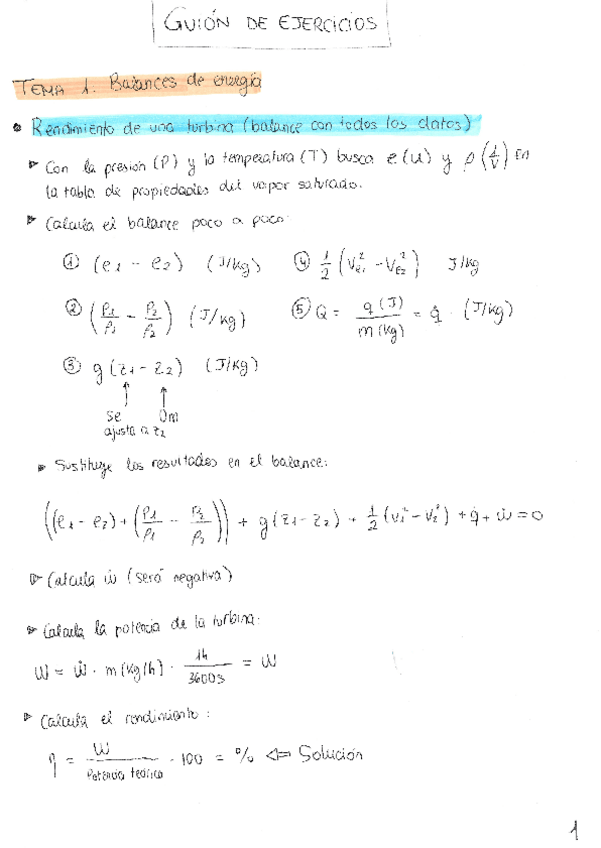 GUIÓN DE EJERCICIOS
TEMA 1. Balances de energía
• Rendimiento de una turbina (balance con todos los datos)
▸ Con la presión (P) y la temperatura (T) busca e (u) y ρ (1/V) en
la tabla de propiedades del vapor saturado.
▸ Calcula el balance poco a poco:
① (e1 - e2) (J/kg) ④ 1/2 (Ve1² - VE2²) J/kg
② (P1/ρ1 - P2/ρ2) (J/kg) ⑤ Q = q (J) / m (kg) = q̇ · (J/kg)
③ g (z1 - z2) (J/kg)
↑ ↑
Se 0m
ajusta a z2
▸ Sustituye los resultados en el balance:
((e1 - e2) + (P1/ρ1 - P2/ρ2)) + g (z1 - z2) + 1/2 (V1² - V2²) + q̇ + ẇ = 0
▸ Calcula ẇ (será negativa)
▸ Calcula la potencia de la turbina:
W = Ẇ · m (kg/h) · 1h/3600s = W
▸ Calcula el rendimiento:
η = W / Potencia teórica · 100 = % ⇐ Solución
1